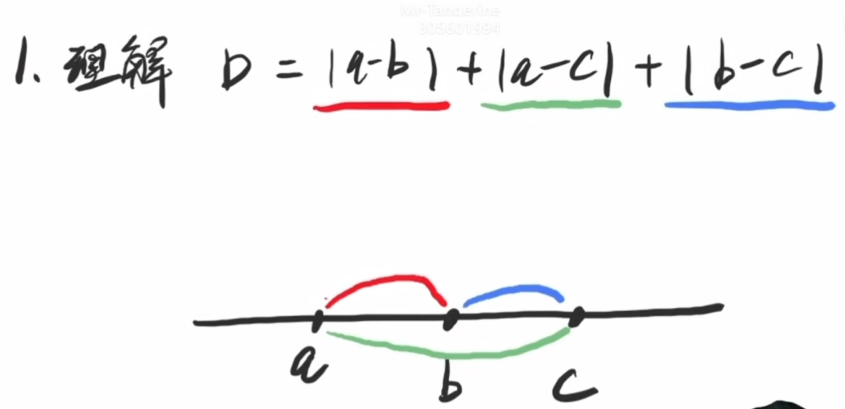 Mr-Tangerine
305601994
1. 理解 D = |a-b| + |a-c| + |b-c|
a b c